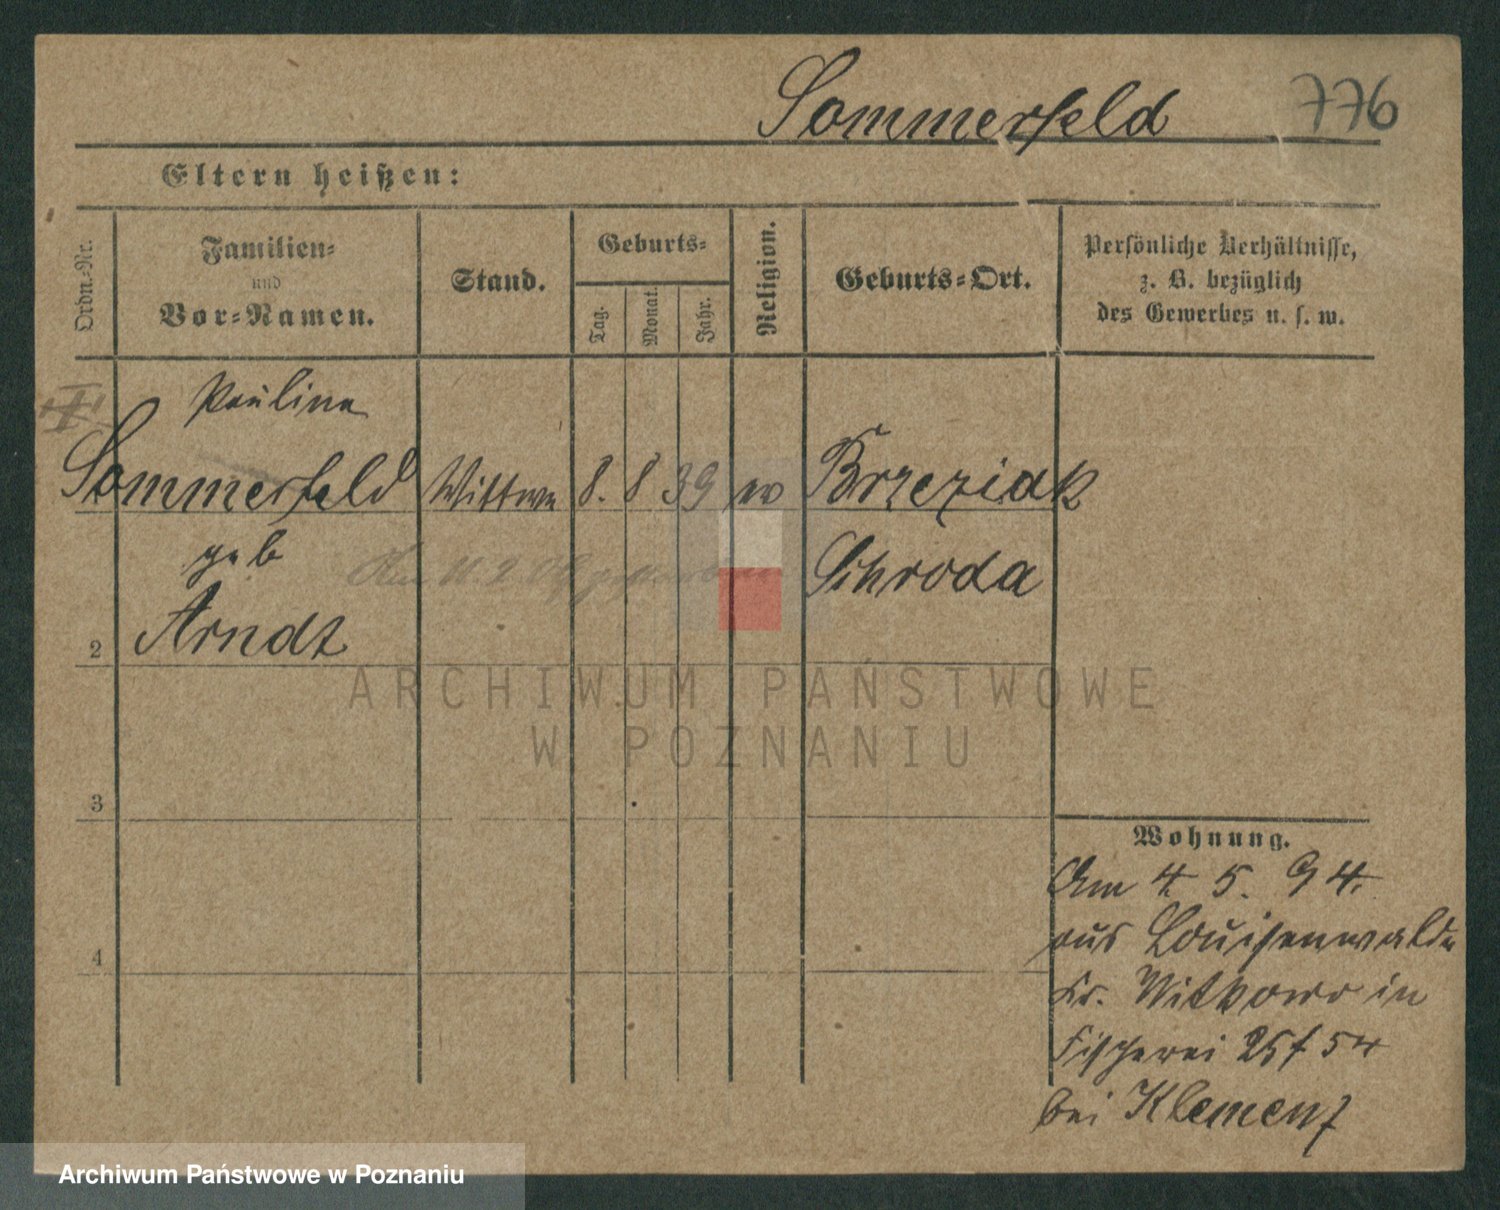 Sommerfeld 776
Eltern heißen:
Ordn.-Nr.
Familien-
und
Vor-Namen.
Stand.
Geburts-
Tag.
Monat.
Jahr.
Religion.
Geburts-Ort.
Persönliche Verhältnisse,
z. B. bezüglich
des Gewerbes u. s. w.
Pauline
Sommerfeld Wittwe 8. 8 39 ev Brzeziak
geb Schroda
Arndt
2
3
4
Wohnung.
Am 4 5. 94.
aus Louisenwalde
Kr. Witkowo in
Fischerei 25 f 54
bei Klemenz
ARCHIWUM PAŃSTWOWE
W POZNANIU
Archiwum Państwowe w Poznaniu